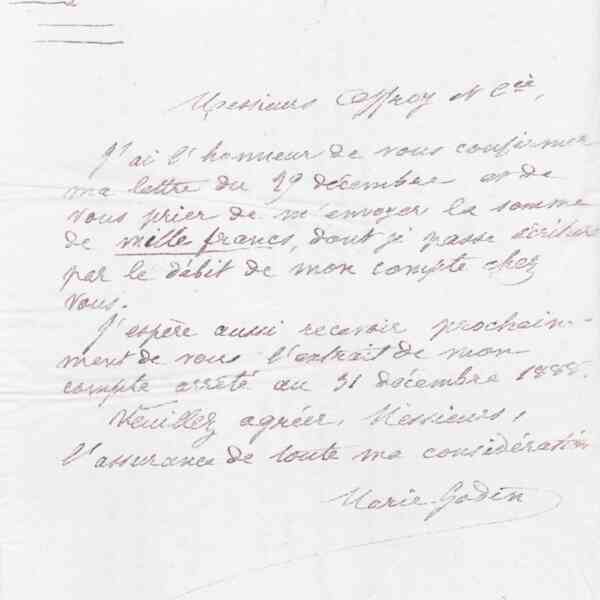 Messieurs Offroy et Cie,
J'ai l'honneur de vous confirmer
ma lettre du 29 décembre et de
vous prier de m'envoyer la somme
de mille francs, dont je passe écriture
par le débit de mon compte chez
vous.
J'espère aussi recevoir prochain-
ment de vous l'extrait de mon
compte arrêté au 31 décembre 1888.
Veuillez agréer, Messieurs,
l'assurance de toute ma considération
Marie Godin